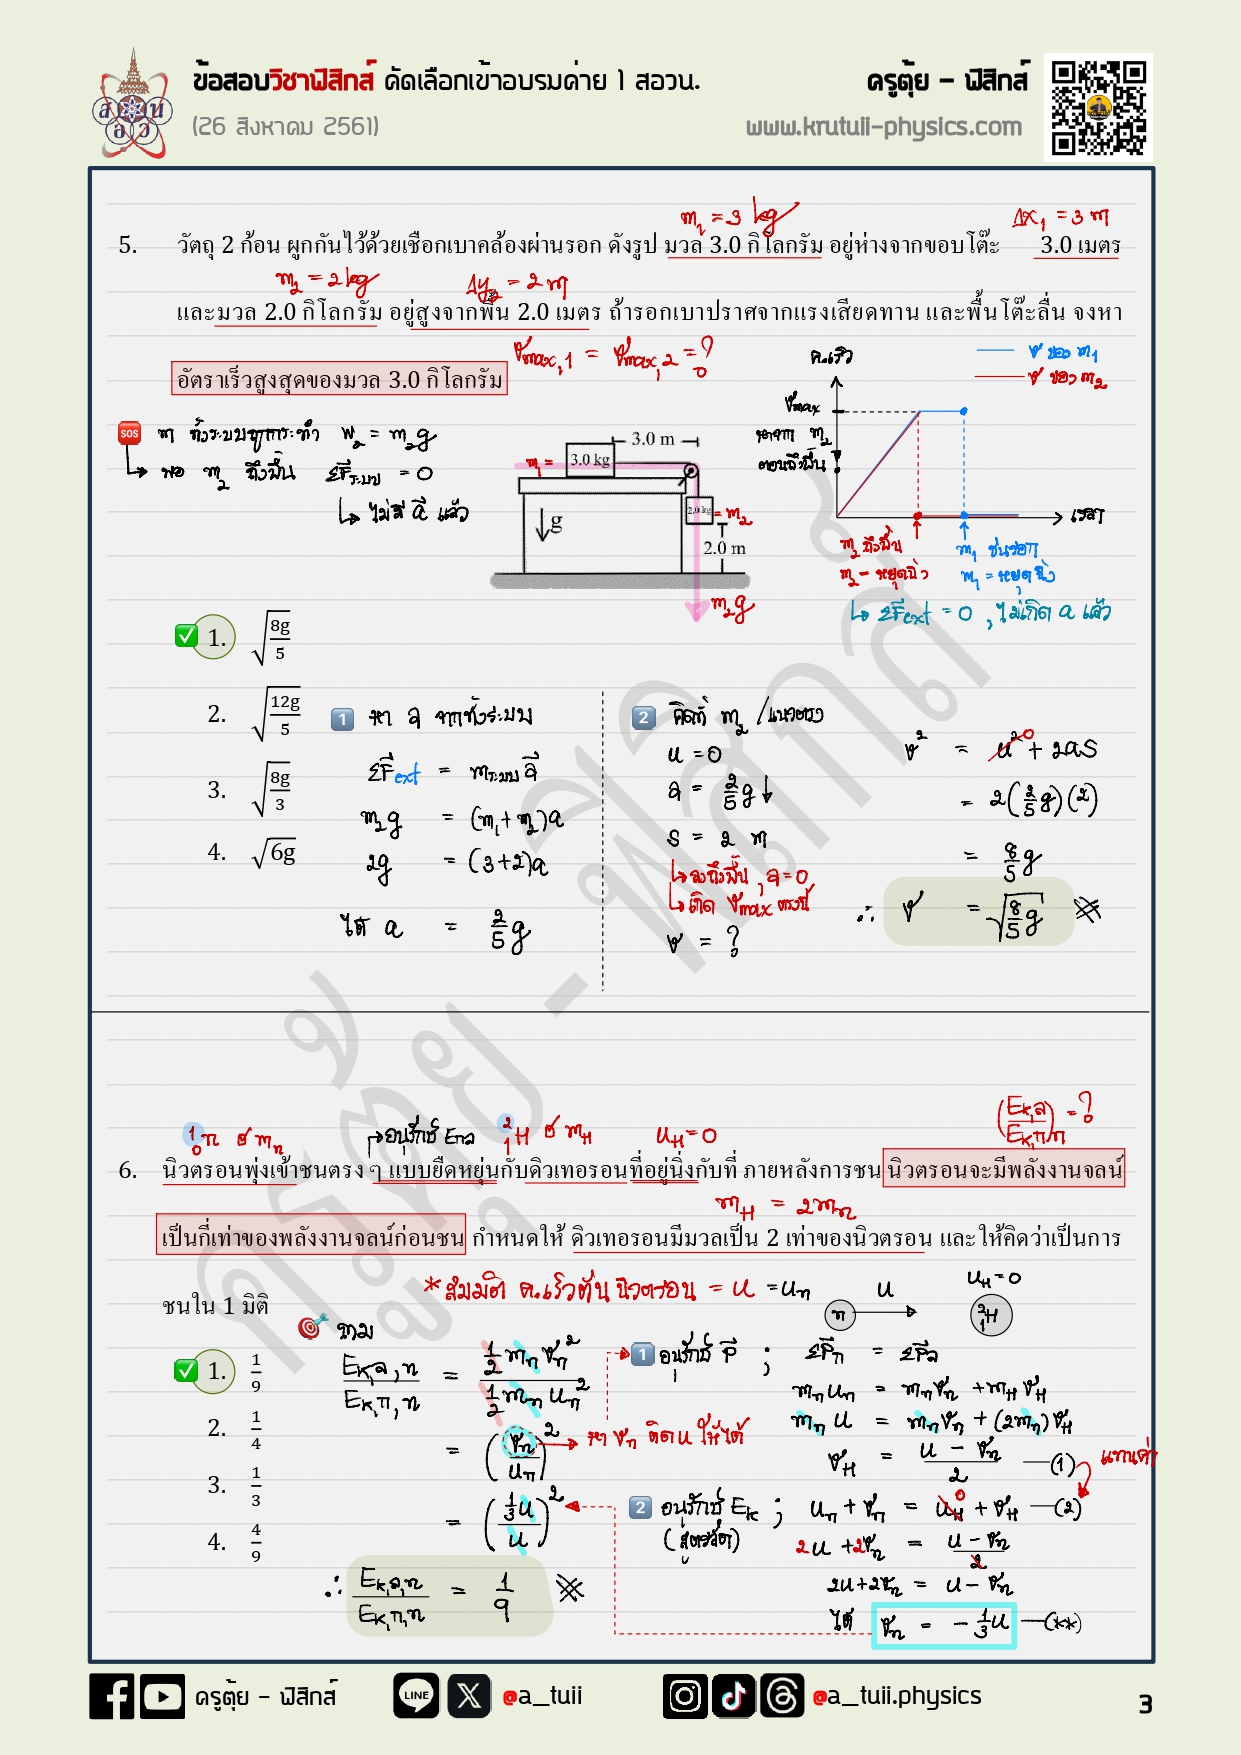 ข้อสอบวิชาฟิสิกส์ คัดเลือกเข้าอบรมค่าย 1 สอวน.
ครูตุ้ย – ฟิสิกส์
(26 สิงหาคม 2561)
www.krutuii-physics.com
m₁ = 3 kg
Δx₁ = 3 m
5. วัตถุ 2 ก้อน ผูกกันไว้ด้วยเชือกเบาคล้องผ่านรอก ดังรูป มวล 3.0 กิโลกรัม อยู่ห่างจากขอบโต๊ะ 3.0 เมตร
m₂ = 2 kg
Δy₂ = 2 m
และมวล 2.0 กิโลกรัม อยู่สูงจากพื้น 2.0 เมตร ถ้ารอกเบาปราศจากแรงเสียดทาน และพื้นโต๊ะลื่น จงหา
อัตราเร็วสูงสุดของมวล 3.0 กิโลกรัม
v_max,1 = v_max,2 = ?
SOS m ทั้งระบบถูกกระทำ W₂ = m₂g
↳ พอ m₂ ถึงพื้น ΣF⃗ระบบ = 0
↳ ไม่มี a⃗ แล้ว
3.0 m
m₁ =
3.0 kg
2.0 kg
= m₂
g
2.0 m
m₂g
ค.เร็ว
v ของ m₁
v ของ m₂
v_max
หาจาก m₂
ตอนถึงพื้น
เวลา
m₂ ถึงพื้น
m₂ = หยุดนิ่ง
m₁ ชนรอก
m₁ = หยุดนิ่ง
↳ ΣF⃗ext = 0 , ไม่เกิด a แล้ว
1. √(8g/5)
2. √(12g/5)
3. √(8g/3)
4. √6g
1 หา a จากทั้งระบบ
ΣF⃗ext = mระบบ a⃗
m₂g = (m₁+m₂)a
2g = (3+2)a
ได้ a = 2/5 g
2 คิดที่ m₂ /แนวตรง
u = 0
a = 2/5 g ↓
s = 2 m
↳ ลงถึงพื้น , a = 0
↳ เกิด v_max ตรงนี้
v = ?
v² = u² 0 + 2as
= 2(2/5 g)(2)
= 8/5 g
∴ v = √(8/5 g)
ครูตุ้ย - ฟิสิกส์
¹₀n มี mₙ
↱อนุรักษ์ Eกล
²₁H มี m_H
u_H = 0
(Ek,ล / Ek,ก)n = ?
6. นิวตรอนพุ่งเข้าชนตรง ๆ แบบยืดหยุ่นกับดิวเทอรอนที่อยู่นิ่งกับที่ ภายหลังการชน นิวตรอนจะมีพลังงานจลน์
m_H = 2mₙ
เป็นกี่เท่าของพลังงานจลน์ก่อนชน กำหนดให้ ดิวเทอรอนมีมวลเป็น 2 เท่าของนิวตรอน และให้คิดว่าเป็นการ
ชนใน 1 มิติ
*สมมติ ค.เร็วต้น นิวตรอน = u = uₙ
n
u
u_H = 0
²₁H
ถาม
1. 1/9
2. 1/4
3. 1/3
4. 4/9
Ek,ล,n / Ek,ก,n = ½mₙvₙ² / ½mₙuₙ²
= (vₙ/uₙ)²
→ หา vₙ ติด u ให้ได้
= (⅓u / u)²
∴ Ek,ล,n / Ek,ก,n = 1/9
1 อนุรักษ์ P⃗ ; ΣP⃗ก = ΣP⃗ล
mₙuₙ = mₙvₙ + m_H v_H
mₙu = mₙvₙ + (2mₙ)v_H
v_H = (u - vₙ)/2 —(1)
แทนค่า
2 อนุรักษ์ Ek ; uₙ + vₙ = u_H 0 + v_H —(2)
(สูตรลัด)
2u + 2vₙ = (u - vₙ)/2
2u + 2vₙ = u - vₙ
ได้ vₙ = -⅓u —(**)
ครูตุ้ย – ฟิสิกส์
LINE
@a_tuii
@a_tuii.physics
3